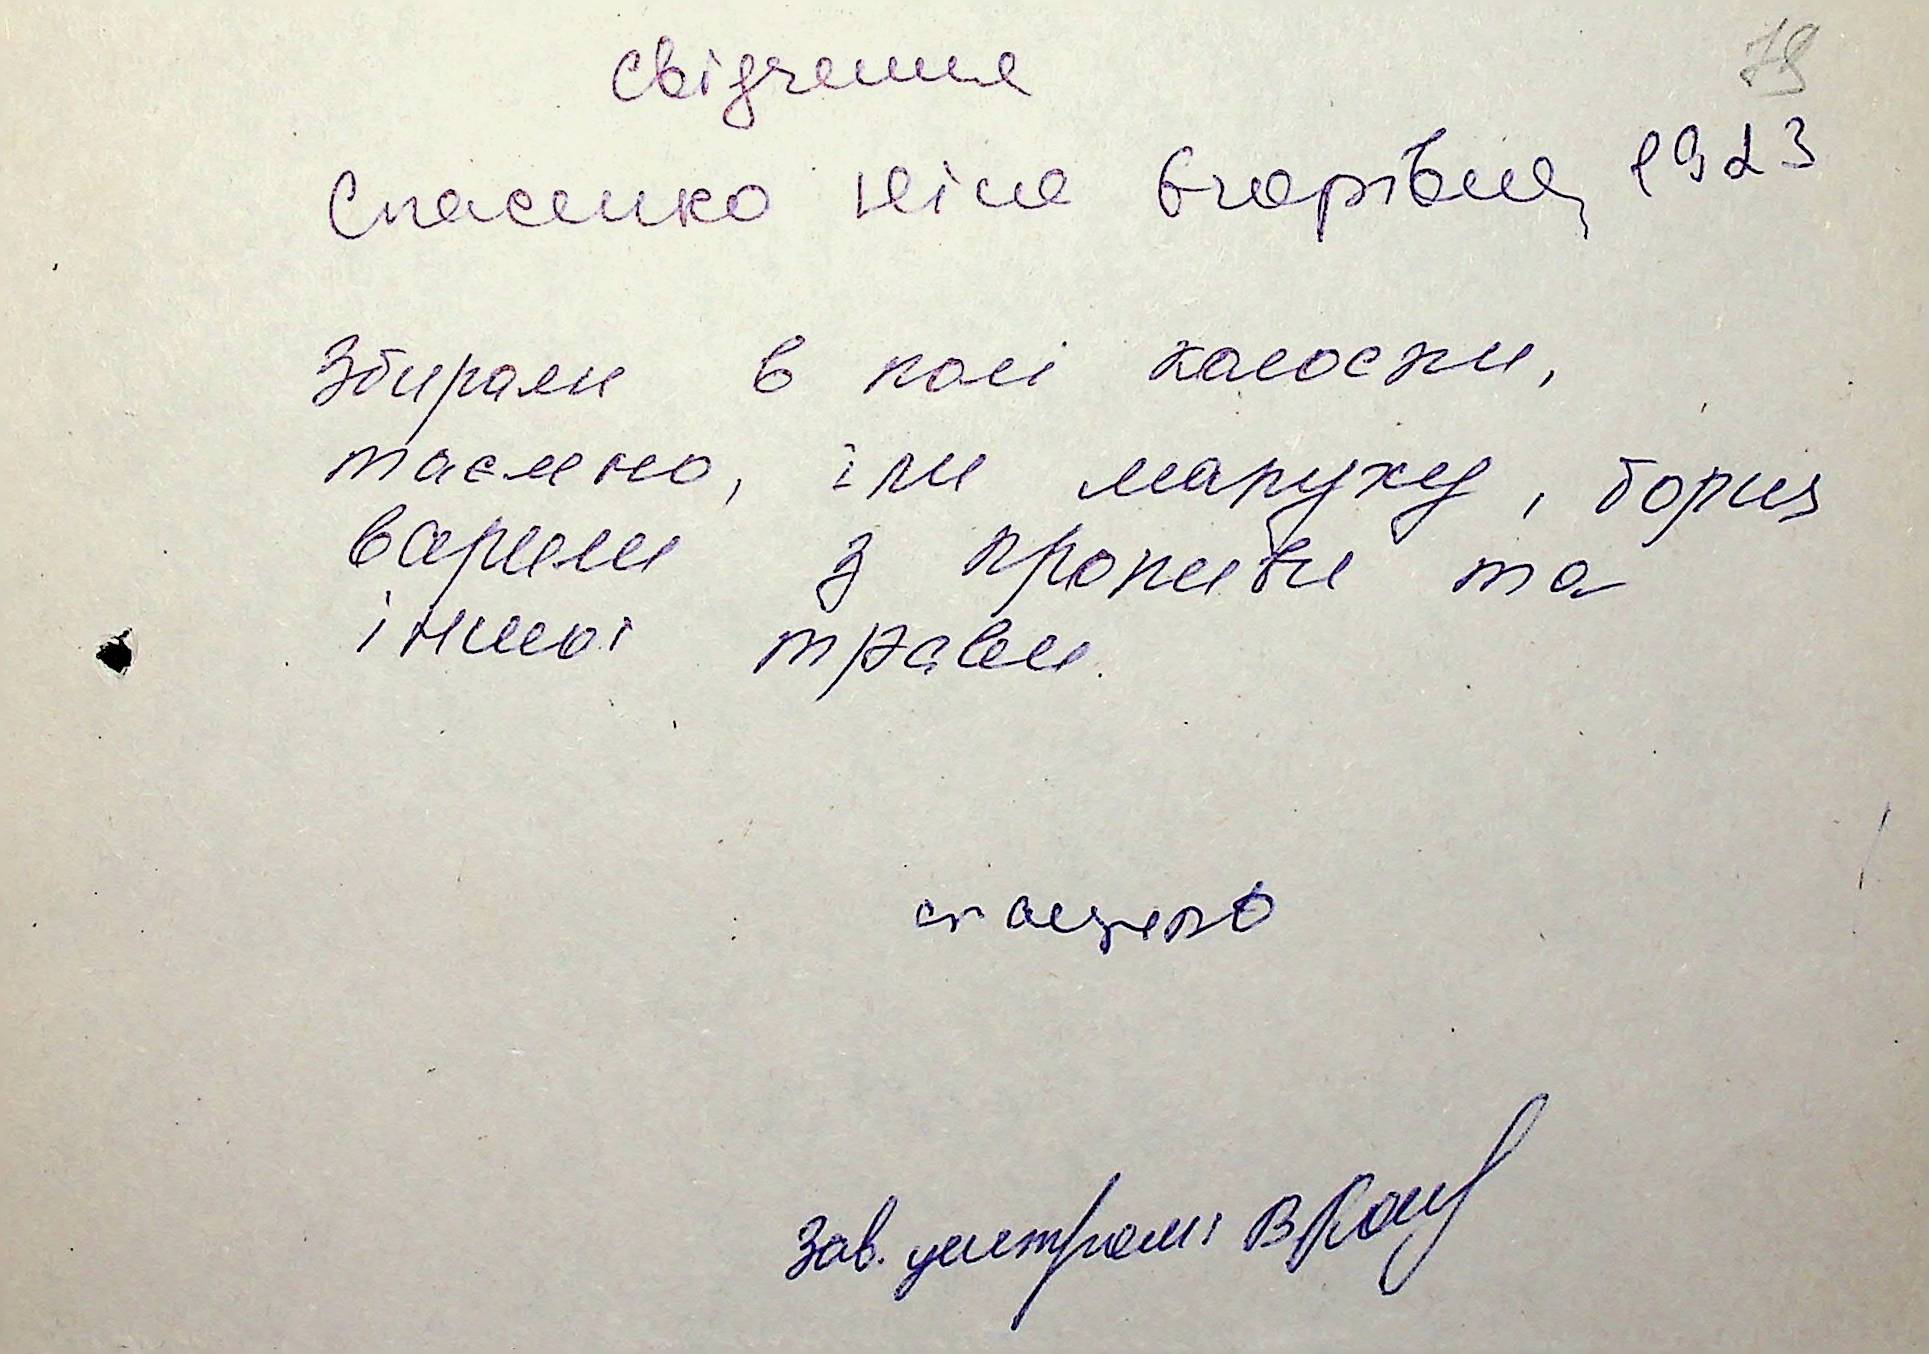 79
Свідчення
Спасенко Ніна Єгорівна, 1923
Збирали в полі колоски,
таємно, їли мапуху, борщ
варили з кропиви та
іншої трави.
Зав. централі В